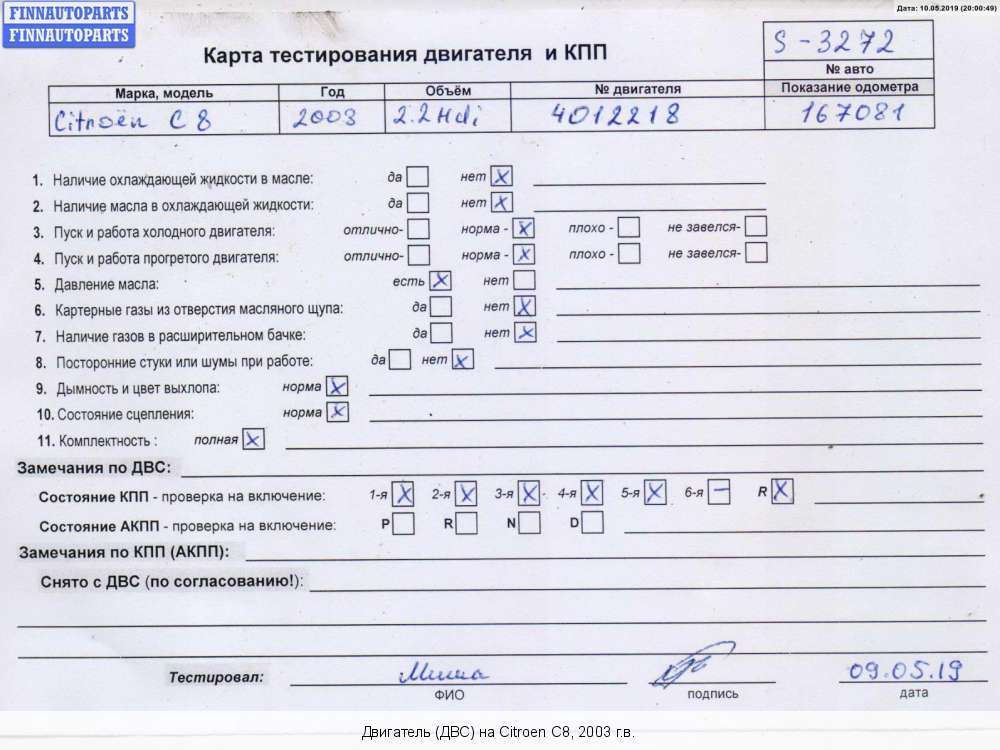 FINNAUTOPARTS
FINNAUTOPARTS
Дата: 10.05.2019 (20:00:49)
Карта тестирования двигателя и КПП
S-3272
№ авто
Марка, модель Год Объём № двигателя Показание одометра
Citroën C8 2003 2.2 Hdi 4012218 167081
1. Наличие охлаждающей жидкости в масле: да нет X
2. Наличие масла в охлаждающей жидкости: да нет X
3. Пуск и работа холодного двигателя: отлично- норма - X плохо - не завелся-
4. Пуск и работа прогретого двигателя: отлично- норма - X плохо - не завелся-
5. Давление масла: есть X нет
6. Картерные газы из отверстия масляного щупа: да нет X
7. Наличие газов в расширительном бачке: да нет X
8. Посторонние стуки или шумы при работе: да нет X
9. Дымность и цвет выхлопа: норма X
10. Состояние сцепления: норма X
11. Комплектность : полная X
Замечания по ДВС:
Состояние КПП - проверка на включение: 1-я X 2-я X 3-я X 4-я X 5-я X 6-я – R X
Состояние АКПП - проверка на включение: P R N D
Замечания по КПП (АКПП):
Снято с ДВС (по согласованию!):
Тестировал: Миша 09.05.19
ФИО подпись дата
Двигатель (ДВС) на Citroen C8, 2003 г.в.